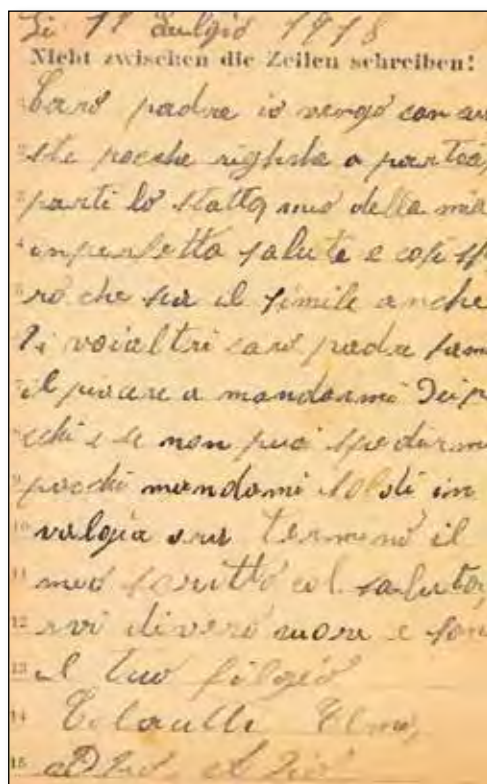 Li 18 Lulgio 1918
Nicht zwischen die Zeilen schreiben!
Caro padre io vengo con
ste pocche righhe a partici,
3 parti lo statto mio della mia
4 inperfetta salute e cosi sp
5 rò che sia il simile anche
di voialtri caro padre fami
il piacere a mandarmi dei p
cchi e se non puoi spedirmi
9 pacchi mandami soldi in
10 valgia ora termino il
11 mio scritto col salutar,
12 rvi di vero cuore e sono
13 il tuo filgio
14 Elmo,
15 Addio Addio